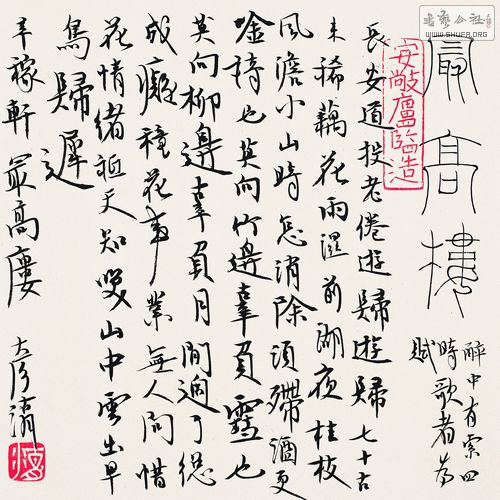 書藝公社
最高樓
醉中有索四
時歌者為
賦
安敞廬臨造
長安道投老倦遊歸遊歸七十古
來稀藕花雨濕前湖夜桂枝
風澹小山時怎消除須殢酒更
吟詩也莫向竹邊辜負雪也
莫向柳邊辜負月閒過了總
成癡種花事業無人問惜
花情緒祗天知笑山中雲出早
鳥歸遲
辛稼軒最高樓